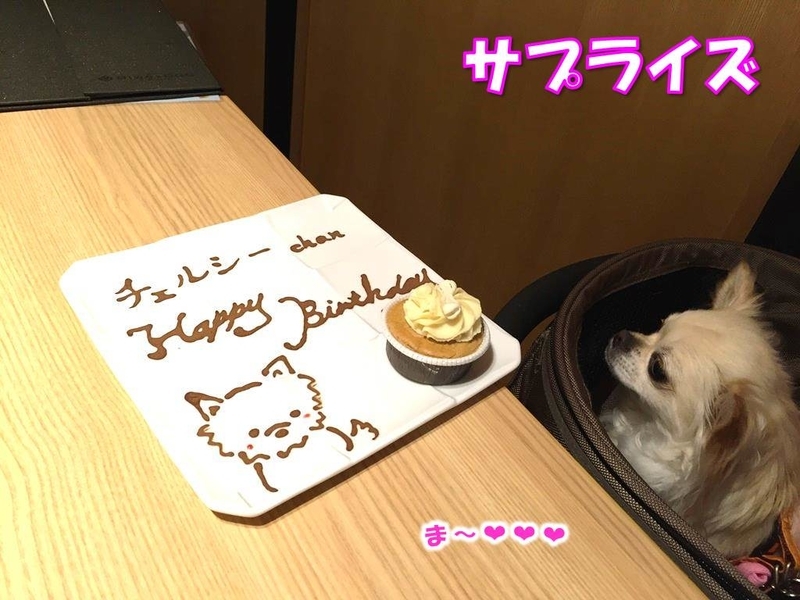 サプライズ
チェルシーchan
Happy Birthday
ま～❤❤❤